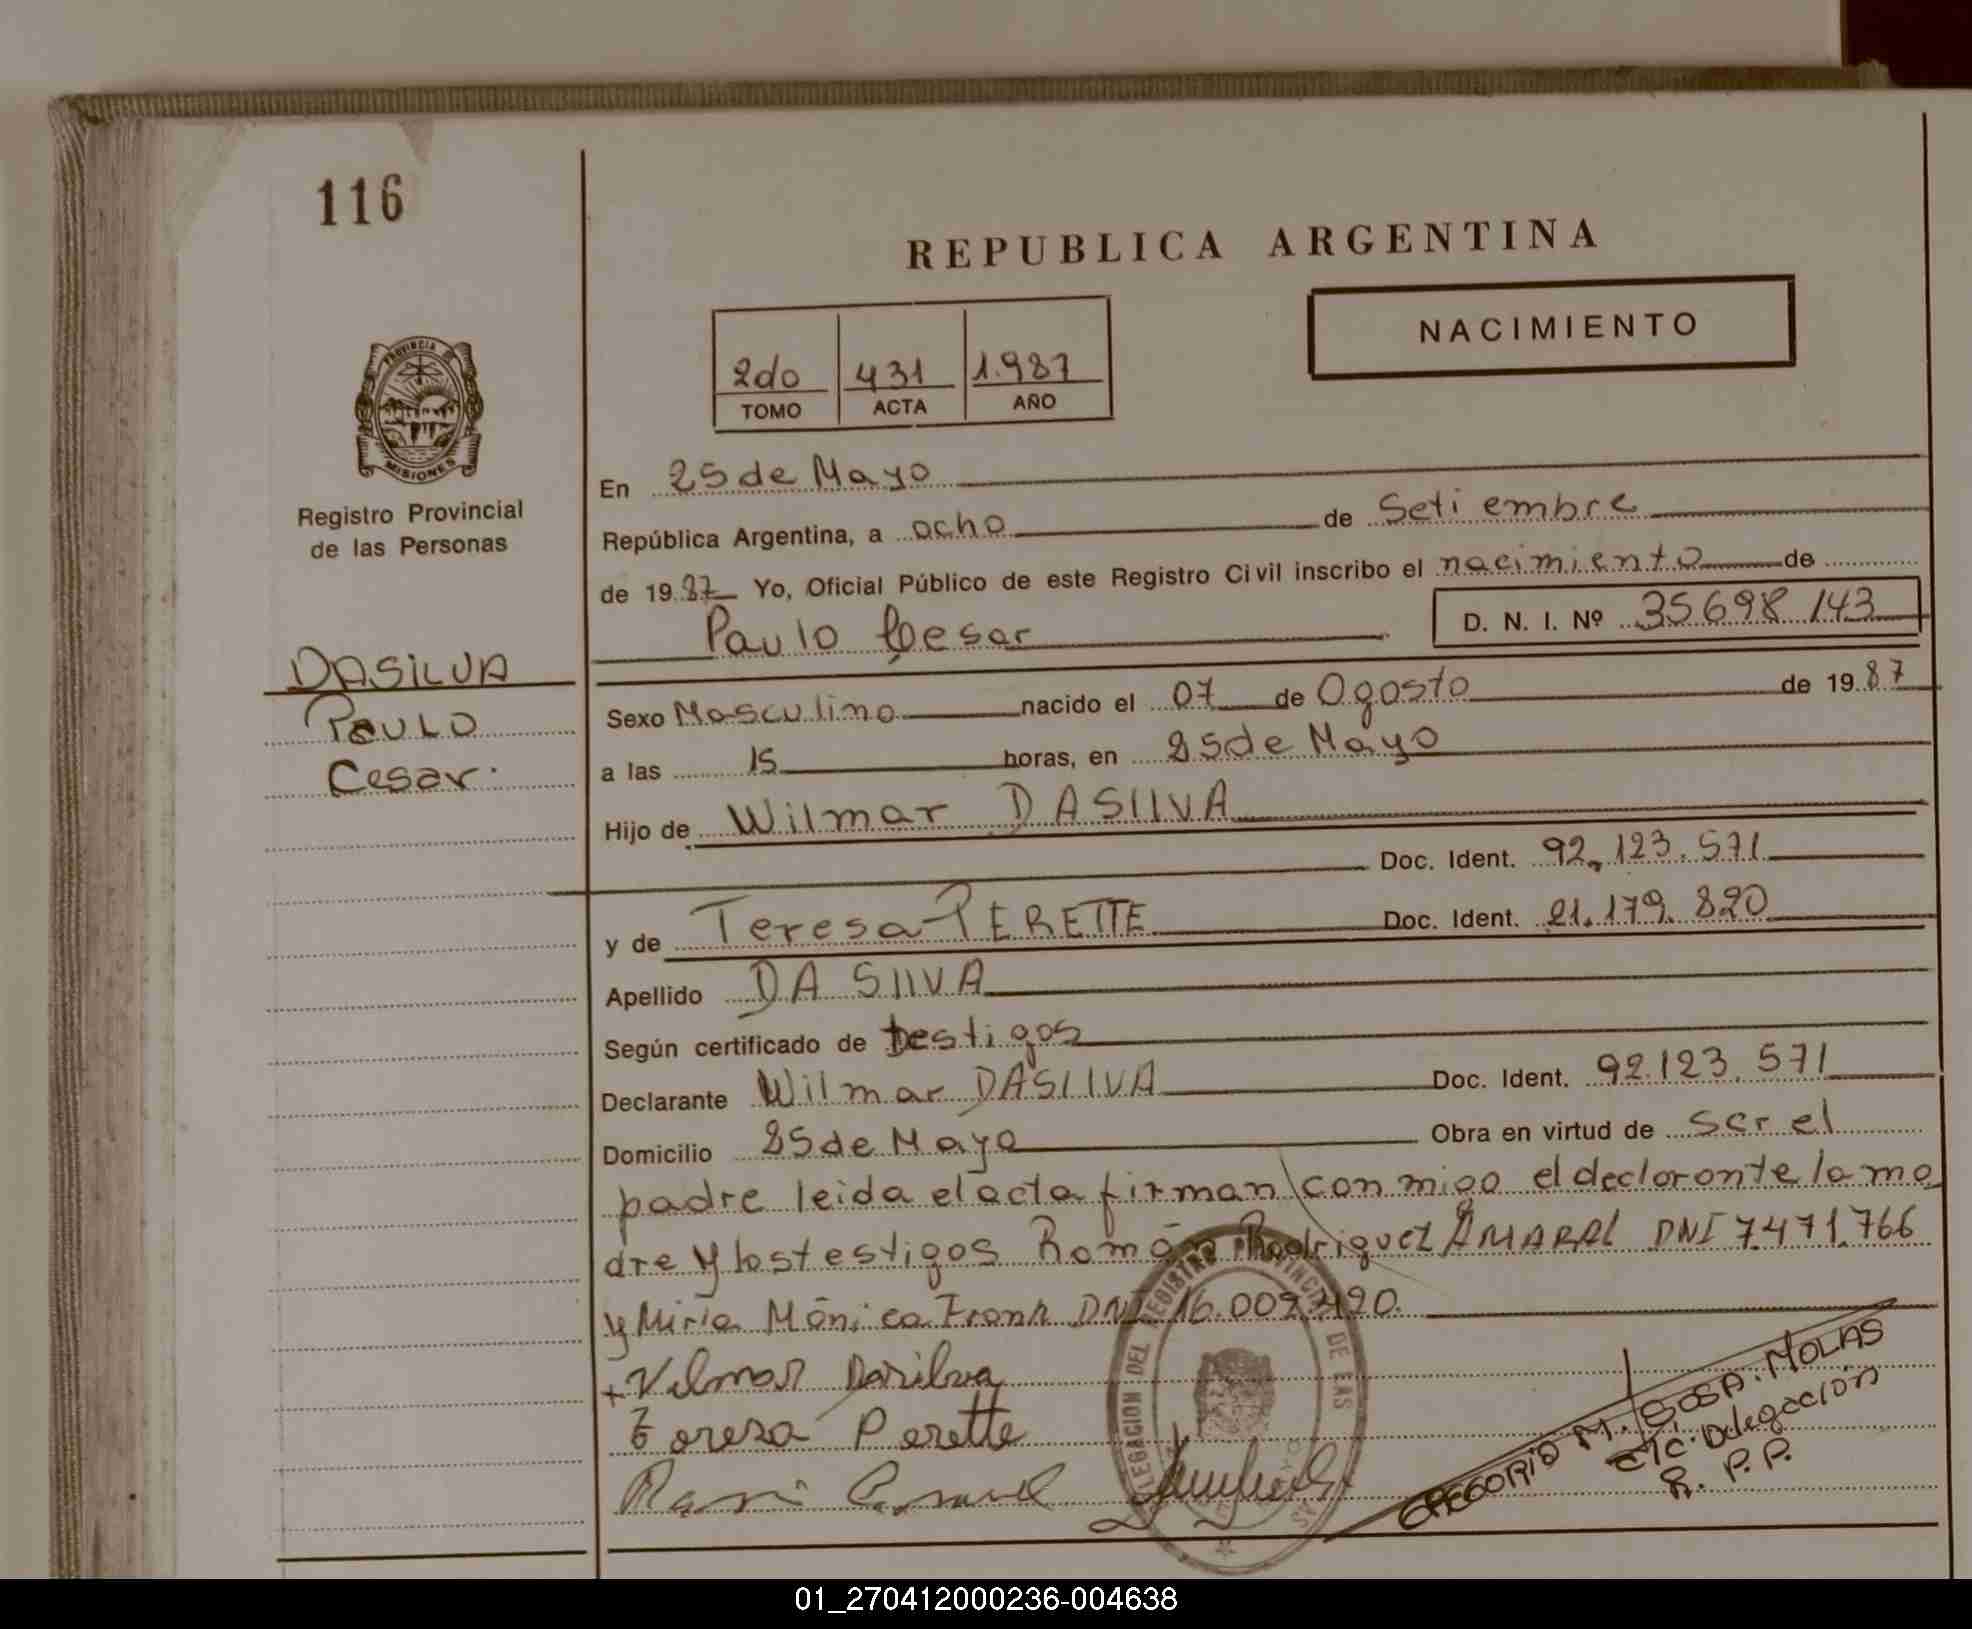 116
REPUBLICA ARGENTINA
NACIMIENTO
2do 431 1.987
TOMO ACTA AÑO
PROVINCIA DE
MISIONES
Registro Provincial
de las Personas
En 25 de Mayo
República Argentina, a ocho de Setiembre
de 1987 Yo, Oficial Público de este Registro Civil inscribo el nacimiento de
Paulo Cesar D. N. I. Nº 35698.143
DASILVA
PAULO
Cesar.
Sexo Masculino nacido el 07 de Agosto de 1987
a las 15 horas, en 25 de Mayo
Hijo de Wilmar DASILVA
Doc. Ident. 92.123.571
y de Teresa PERETTE Doc. Ident. 21.179.820
Apellido DA SILVA
Según certificado de testigos
Declarante Wilmar DASILVA Doc. Ident. 92.123.571
Domicilio 25 de Mayo Obra en virtud de ser el
padre leida el acta firman conmigo el declarante la ma
dre y los testigos Román Rodriguez AMARAL DNI 7.471.766
y Miria Mónica Frank DNI 16.009.490.
Vilmar Dasilva
Tereza Perette
DELEGACION DEL REGISTRO PROVINCIAL DE LAS
GREGORIO M. SOSA. MOLAS
E/C. Delegación
R. P. P.
01_270412000236-004638